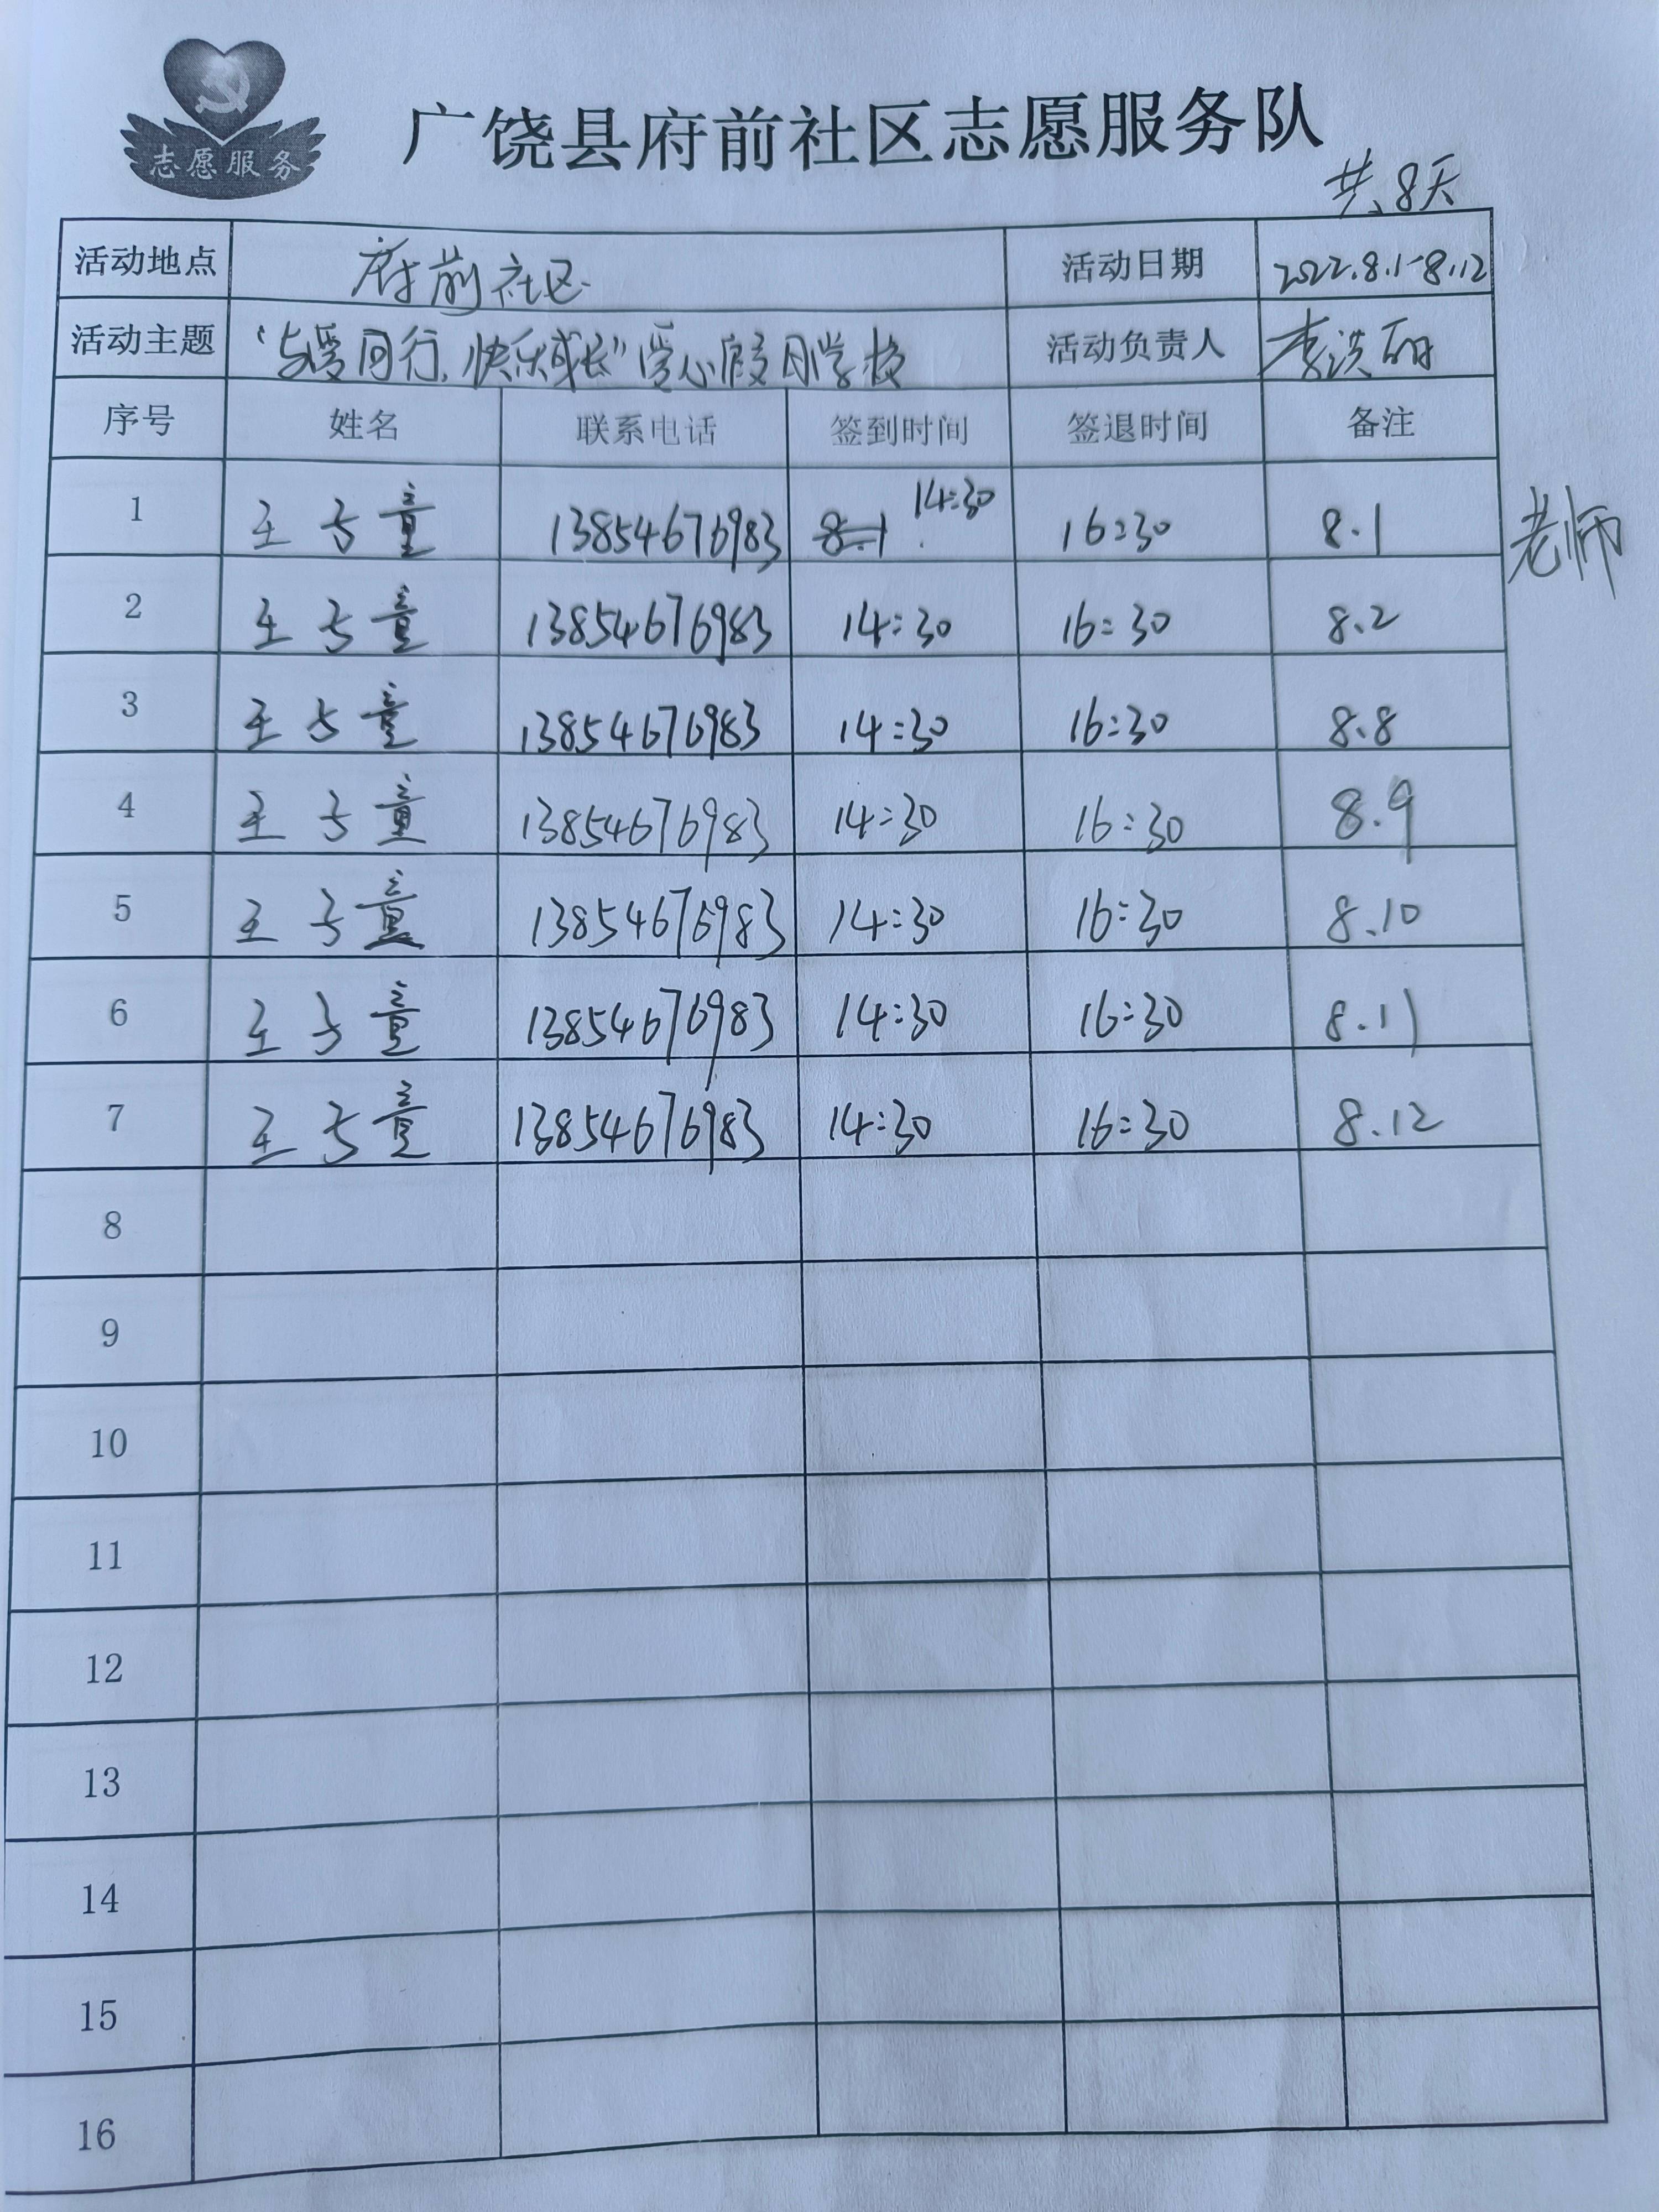 志愿服务
广饶县府前社区志愿服务队
共8天
活动地点 府前社区 活动日期 2022.8.1-8.12
活动主题 "与爱同行,快乐成长"爱心假日学校 活动负责人 李洪丽
序号 姓名 联系电话 签到时间 签退时间 备注
1 王子童 13854676983 8.1 14:30 16:30 8.1 老师
2 王子童 13854676983 14:30 16:30 8.2
3 王子童 13854676983 14:30 16:30 8.8
4 王子童 13854676983 14:30 16:30 8.9
5 王子童 13854676983 14:30 16:30 8.10
6 王子童 13854676983 14:30 16:30 8.11
7 王子童 13854676983 14:30 16:30 8.12
8
9
10
11
12
13
14
15
16